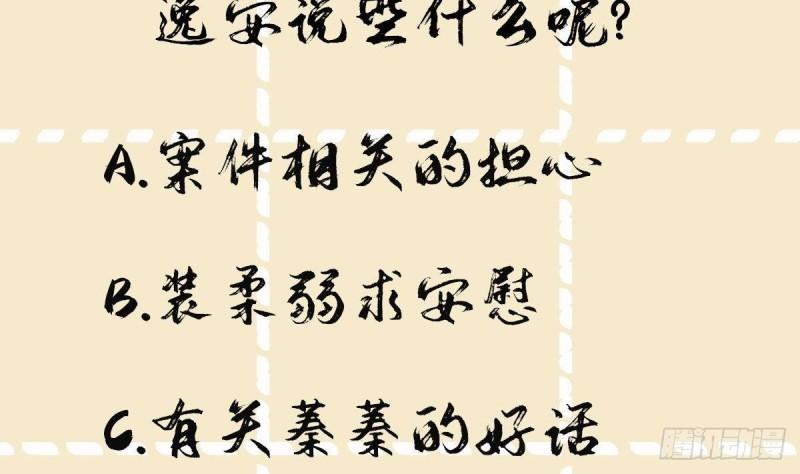 逸安说些什么呢?
A.案件相关的担心
B.装柔弱求安慰
C.有关蓁蓁的好话
腾讯动漫